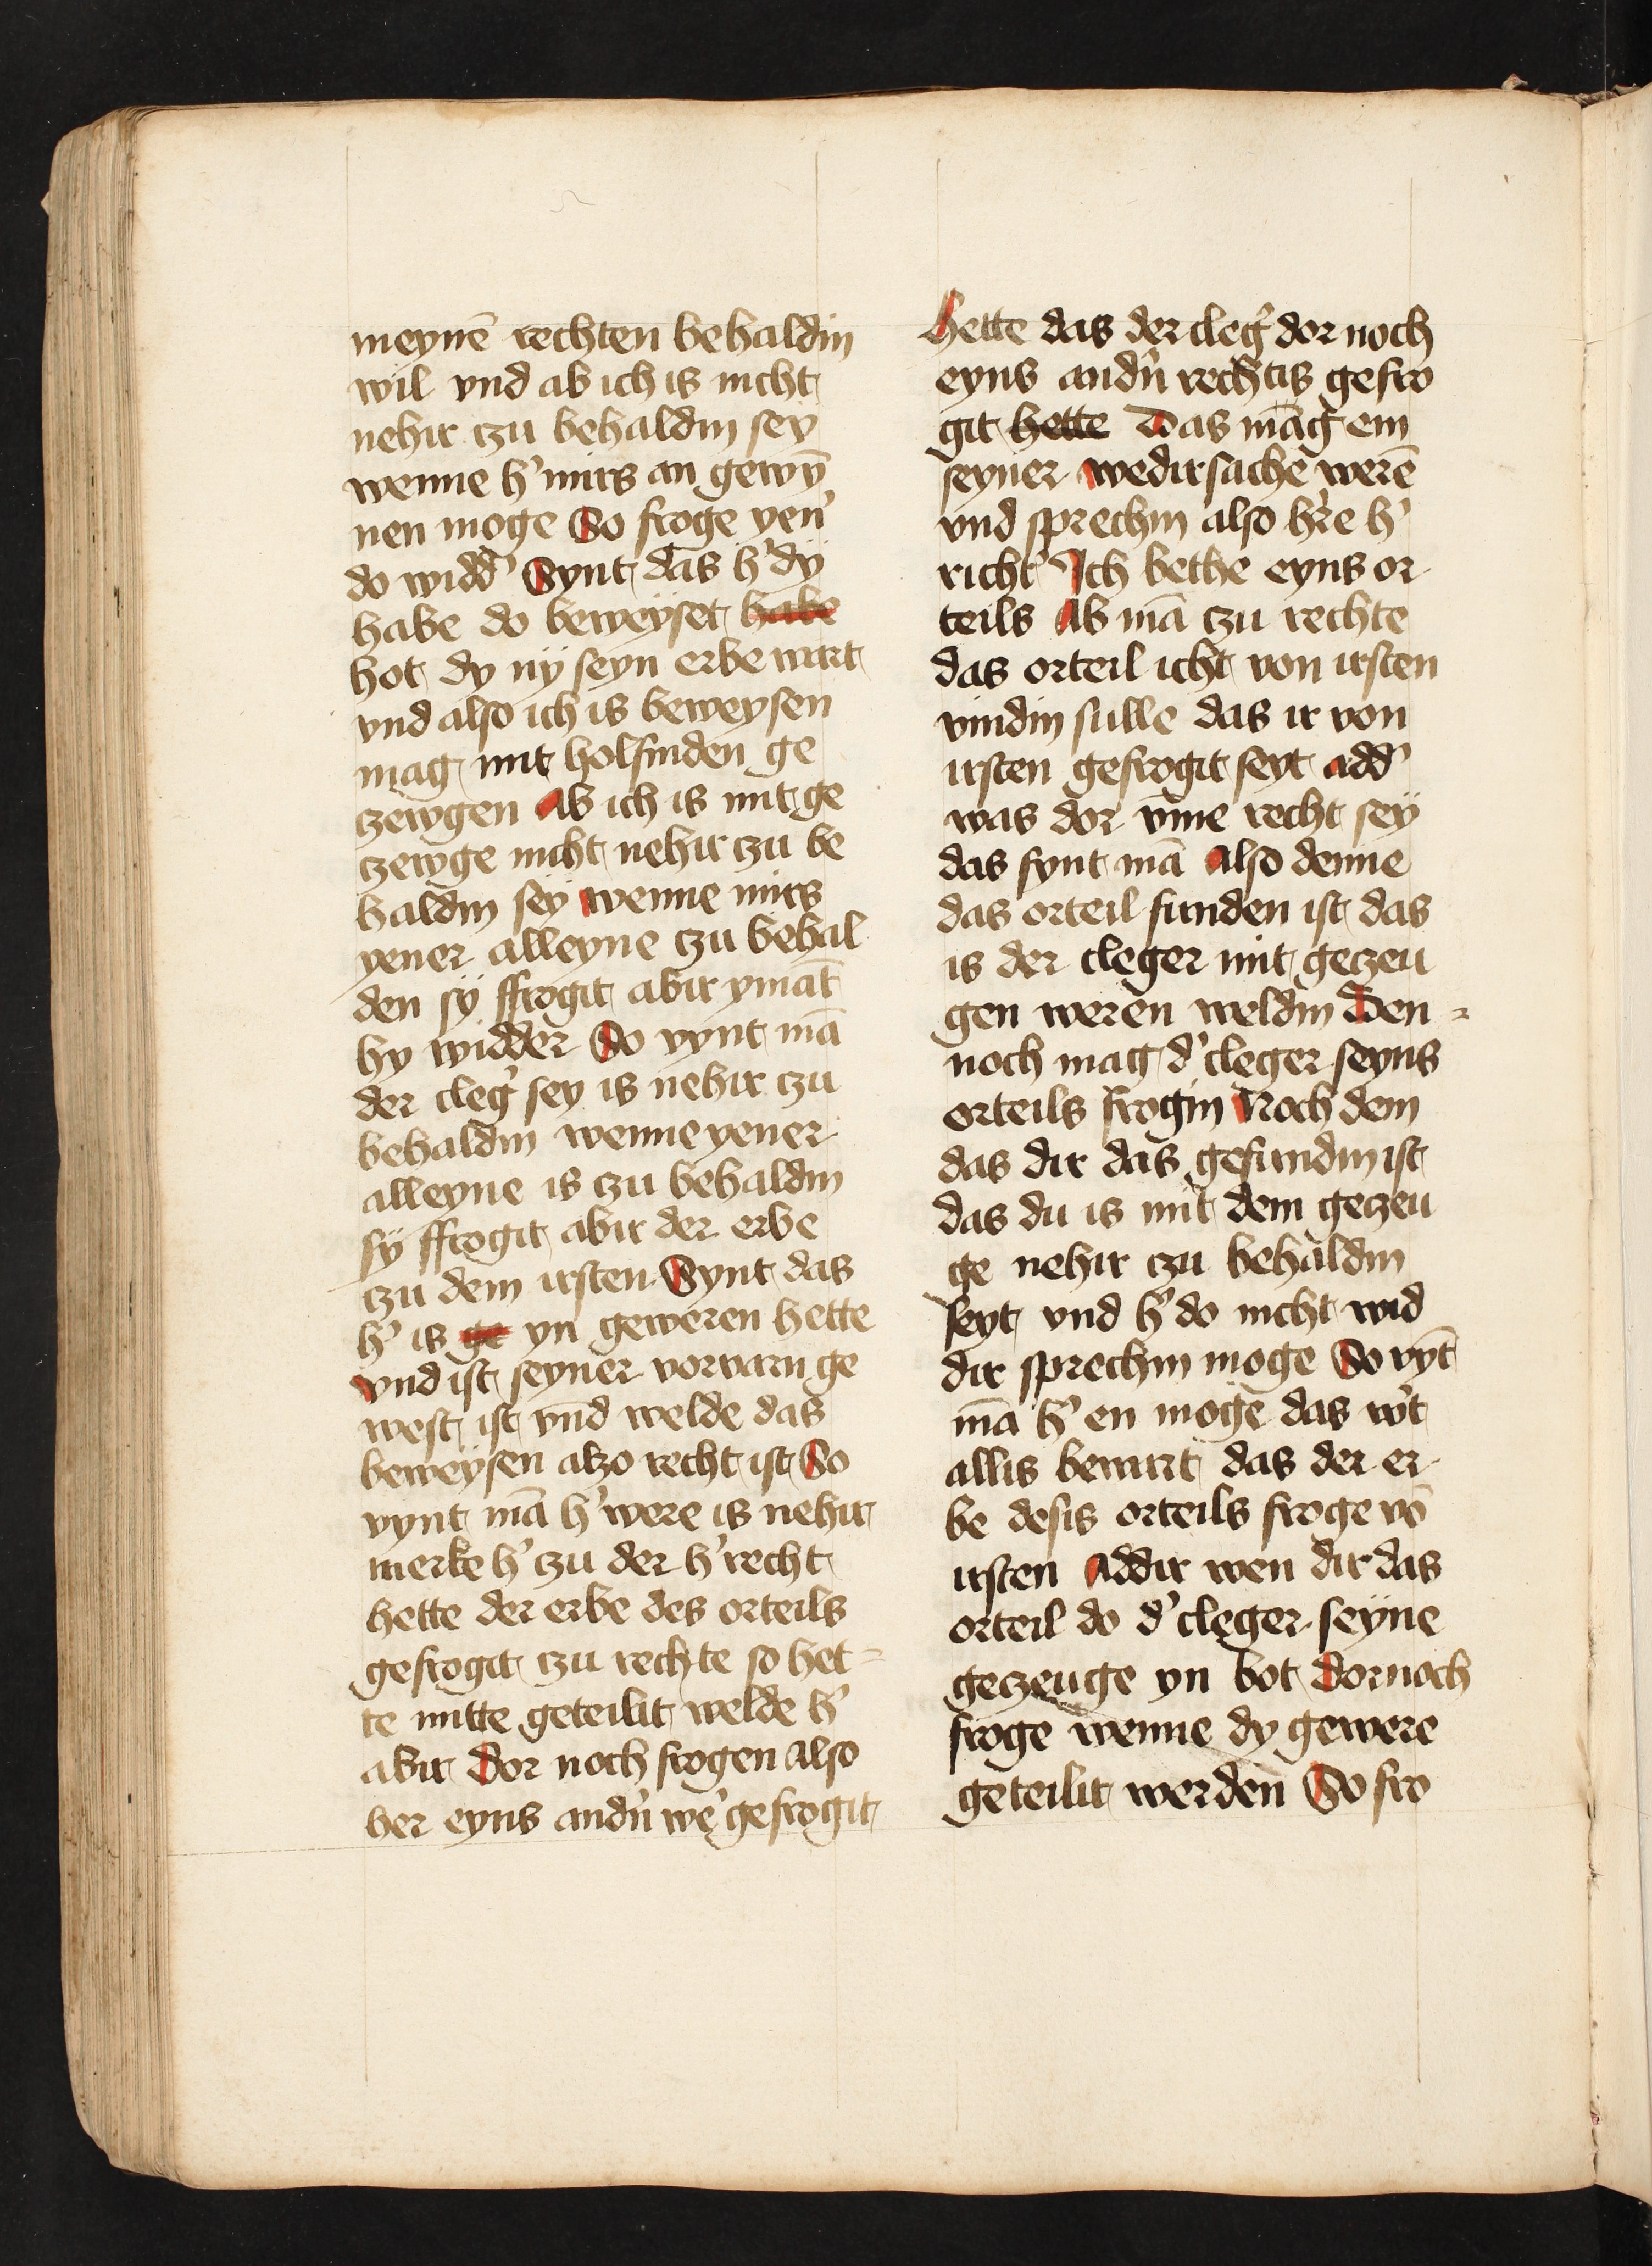 meynē rechten behaldin
wil vnd ab ich is nicht
nehir czu behaldin sey
wenne h' mirs an gewȳ
nen moge So froge yen'
do widd' Synt das h' dÿ
habe do beweÿset habe
hot dy nÿ seyn erbe wart
vnd also ich is beweysen
mag mit holfinden ge
czewgen Ab ich is mit ge
czewge nicht nehir czu be
haldin seÿ wenne mirs
yener alleyne czu behal
den sÿ ffrogit abir ymāt
hy widder So vynt mā
der cleg' sey is nehir czu
behaldin wenne yener
alleyne is czu behaldin
sÿ ffrogit abir der erbe
czu dem irsten Synt das
h' is ge yn geweren hette
vnd ist seyner vorvarn ge
west ist vnd welde das
beweÿsen alzo recht ist So
vynt mā h' were is nehir
merke h' czu der h' recht
hette der erbe des orteils
gefrogit czu rechte so het-
te mitte geteilit welde h'
abir Dor noch frogen also
her eyns andn̄ we' gefrogit
hette das der cleg' dor noch
eyns andn̄ rechtis gefro
git hette Das māg em
seyner wedirsache werē
vnd sprechin also h're h'
richt' Ich bethe eyns or
teils Ab mā czu rechte
das orteil icht von irsten
vindin sulle das ir von
irsten gefrogit seyt add'
was dor v̄me recht seÿ
das fynt mā Also denne
das orteil funden ist das
is der cleger mit geczeu
gen weren weldin Den-
noch mag d' cleger seyns
orteils frogin Noch dem
das dir das gefundin ist
das du is mit dem geczeu
ge nehir czu behaldin
seyt vnd h' do nicht wid
dir sprechin moge So vȳt
mā h' en moge das w't
allis bewart das der er
be desis orteils froge vō
irsten Addir wen dir das
orteil do d' cleger seÿne
geczeuge yn bot dornoch
froge wenne dy gewere
geteilit werden So fro